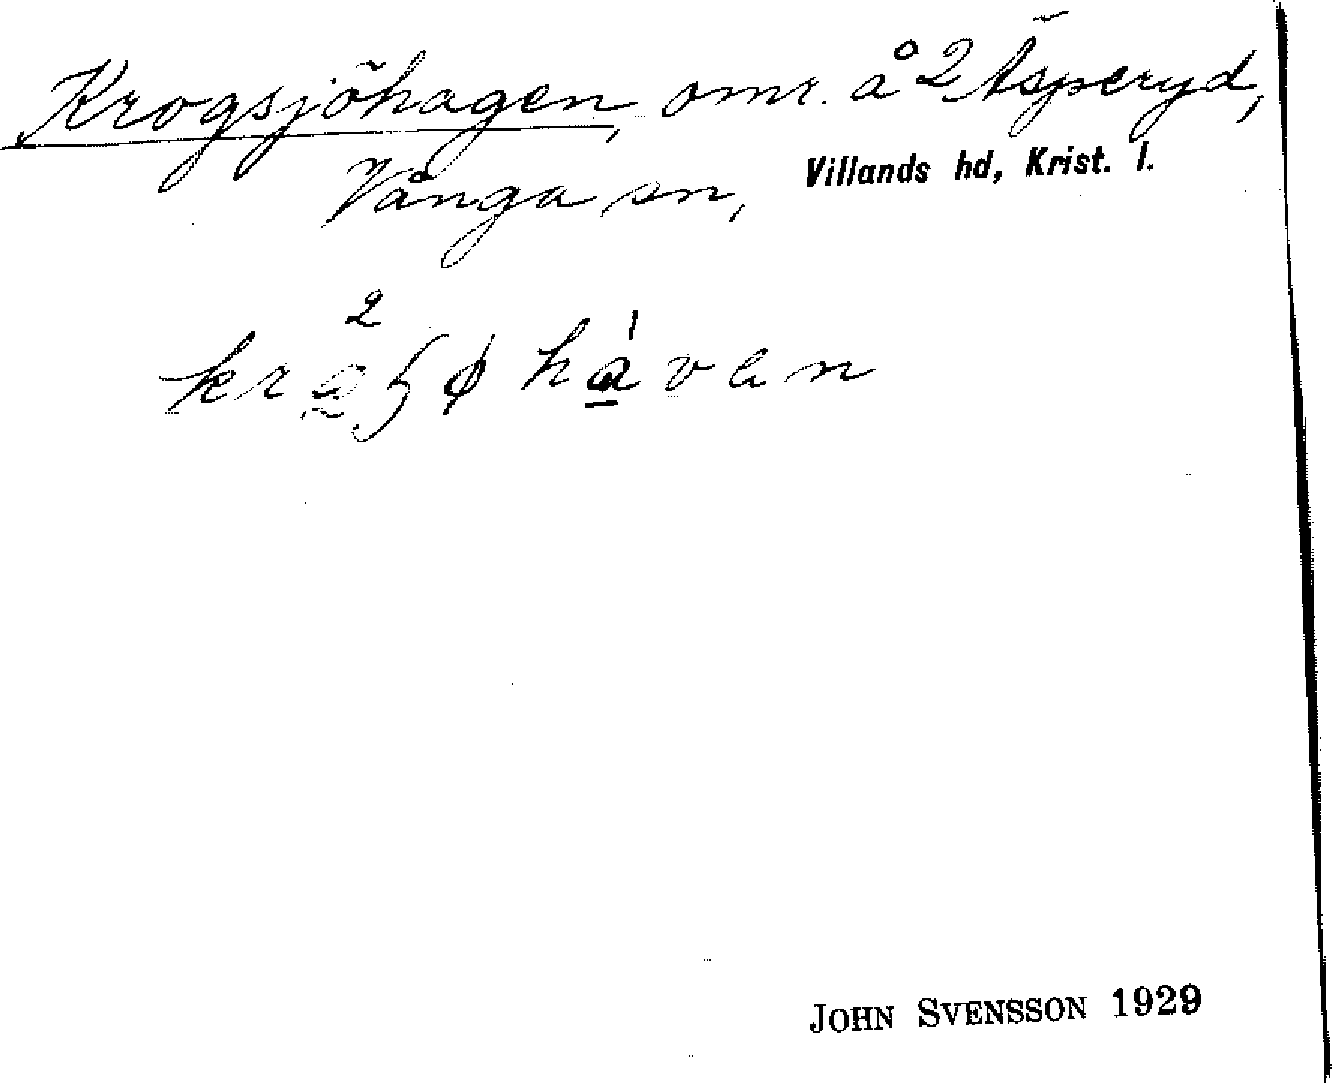 Krogsjöhagen, omr. å 2 Äsperyd,
Vånga sn, Villands hd, Krist. l.
JOHN SVENSSON 1929